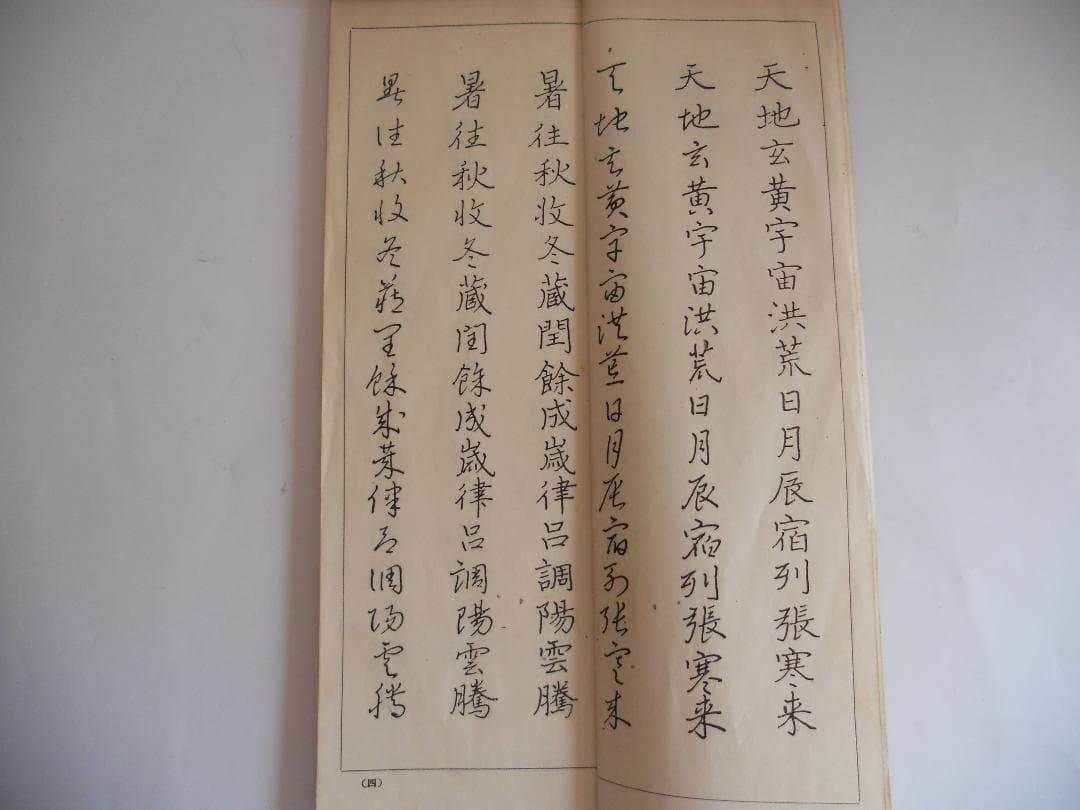 天地玄黄宇宙洪荒日月辰宿列張寒来
天地玄黄宇宙洪荒日月辰宿列張寒来
天地玄黄宇宙洪荒日月辰宿列张寒来
暑往秋收冬蔵閏餘成嵗律呂調陽雲騰
暑往秋收冬蔵閏餘成嵗律呂調陽雲騰
暑往秋收冬蔵閏餘成歲律呂調陽雲騰
(四)